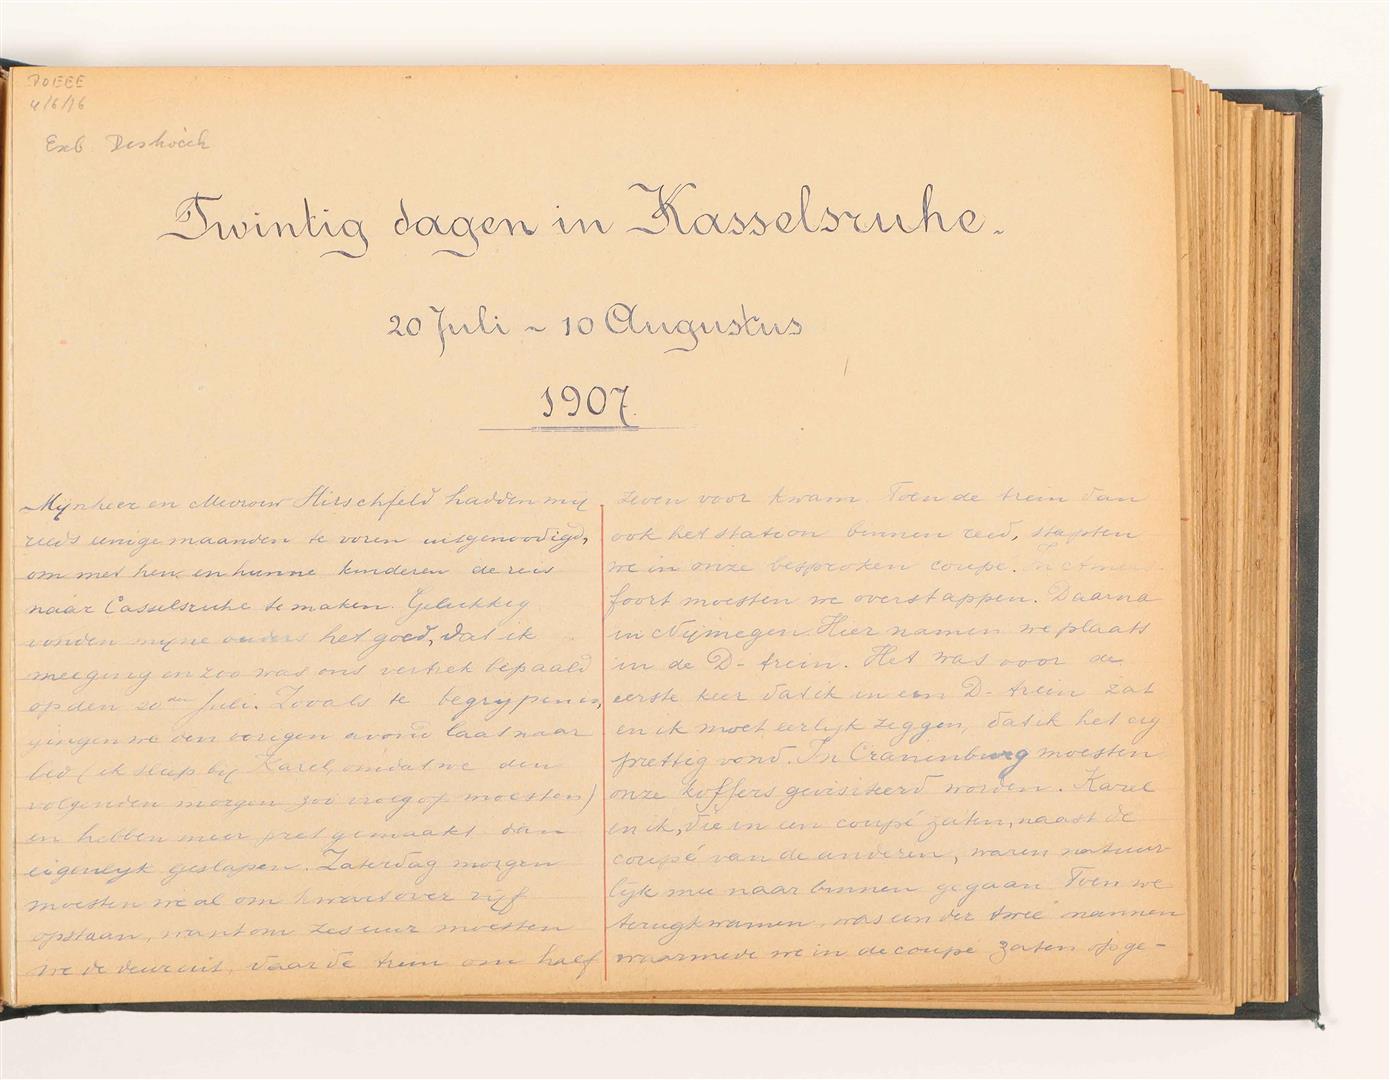 4/6/16
Twintig dagen in Kasselsruhe.
20 Juli ~ 10 Augustus
1907.
Mynheer en Mevrouw Hirschfeld hadden my
reeds eenige maanden te voren uitgenoodigd,
om met hen en hunne kinderen de reis
naar Casselsruhe te maken. Gelukkig
vonden myne ouders het goed, dat ik
meeging en zoo was ons vertrek bepaald
op den 20sten Juli. Zooals te begrypen is,
gingen we den vorigen avond laat naar
bed (ik sliep by Karel, omdat we den
volgenden morgen zoo vroeg op moesten)
en hebben meer pret gemaakt dan
eigenlyk geslapen. Zaterdag morgen
moesten we al om kwart over vyf
opstaan, want om zes uur moesten
we de deur uit, daar de trein om half
zeven voor kwam. Toen de trein dan
ook het station binnen reed, stapten
we in onze besproken coupé. In Amers-
foort moesten we overstappen. Daarna
in Nijmegen. Hier namen we plaats
in de D-trein. Het was voor de
eerste keer dat ik in een D-trein zat
en ik moet eerlyk zeggen, dat ik het erg
prettig vond. In Cranenburg moesten
onze koffers gevisiteerd worden. Karel
en ik, die in een coupé zaten, naast de
coupé van de anderen, waren natuur-
lyk mee naar binnen gegaan. Toen we
terugkwamen, was een der twee mannen
waarmede we in de coupé zaten opge-